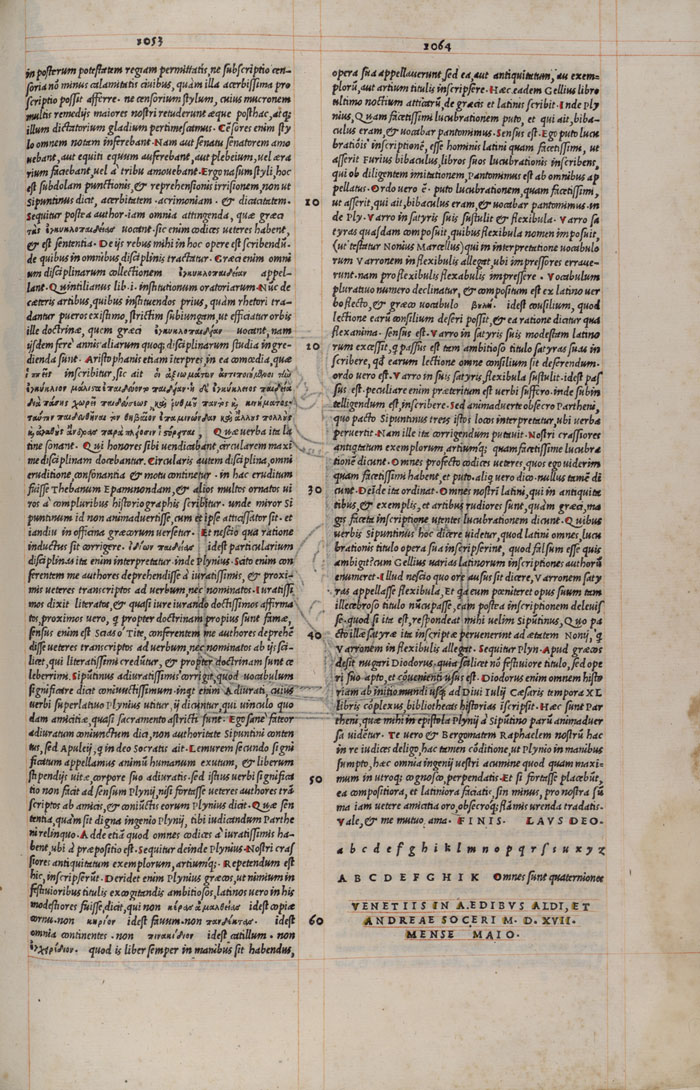 1053
in posterum potestatem regiam permittatis, ne subscriptio cen-
soria nō minus calamitatis ciuibus, quàm illa acerbissima pro
scriptio possit afferre. ne censorium stylum, cuius mucronem
multis remedijs maiores nostri retuderunt æque posthac, atq;
illum dictatorium gladium pertimescamus. Cēsores enim sty
lo omnem notam inserebant. Nam aut senatu senatorem amo
uebant, aut equiti equum auferebant, aut plebeium, uel æra
rium faciebant, uel à tribu amouebant. Ergo nasum styli, hoc
est subdolam punctionis, & reprehensionis irrisionem, non ut
Sipuntinus dicit, acerbitatem. acrimoniam. & dicacitatem.
Sequitur postea author. iam omnia attingenda, quæ græci
τῆς ἐγκυκλοπαιδείας uocant. sic enim codices ueteres habent,
& est sententia. De ijs rebus mihi in hoc opere est scribendū.
de quibus in omnibus disciplinis tractatur. Græci enim omni
um disciplinarum collectionem ἐγκυκλοπαιδείαν appel-
lant. Quintilianus lib. i. institutionum oratoriarum. Nūc de
cæteris artibus, quibus instituendos prius, quàm rhetori tra-
dantur pueros existimo, strictim subiungam, ut efficiatur orbis
ille doctrinæ, quem græci ἐγκυκλοπαιδείαν uocant, nam
ijsdem ferè annis aliarum quoq; disciplinarum studia ingre-
dienda sunt. Aristophanis etiam iterpres in ea comœdia, quæ
inscribitur, sic ait
Quæ uerba ita la
tine sonant. Qui honores sibi uendicabant, circularem maxi
me disciplinam docebantur. Circularis autem disciplina, omni
eruditione consonantia & motu continetur. in hac eruditum
fuisse Thebanum Epaminondam, & alios multos ornatos ui
ros à compluribus historiographis scribitur. unde miror Si
puntinum id non animaduertisse, cum et ipse atticissator sit. et
iandiu in officina græcorum uersetur. Et nescio qua ratione
inductus sit corrigere. ἰδίων παιδείας idest particularium
disciplinas ita enim interpretatur. inde Plynius. Scito enim con
ferentem me authores deprehendisse à iuratissimis, & proxi-
mis ueteres transcriptos ad uerbum, nec nominatos. Iuratissi
mos dixit literatos, & quasi iure iurando doctissimos affirma
tos, proximos uero, q propter doctrinam propius sunt famæ,
sensus enim est Scito ô Tite, conferentem me authores deprehē
disse ueteres transcriptos ad uerbum, nec nominatos ab ijs sci-
licet, qui literatissimi credūtur, & propter doctrinam sunt ce
leberrimi. Sipūtinus adiuratissimos corrigit, quod uocabulum
significare dicit coniunctissimum. inqt enim Adiurati, cuius
uerbi superlatiuo Plynius utitur, ij dicuntur, qui uinculo quo
dam amicitiæ, quasi sacramento astricti sunt. Ego sane fateor
adiuratum coniunctum dici, non authoritate Sipuntini conten
tus, sed Apuleij, q in deo Socratis ait. Lemurem secundo signi
ficatum appellamus animū humanum exutum, & liberum
stipendijs uitæ, corpore suo adiuratis. sed istius uerbi significa
tio non facit ad sensum Plynij, nisi fortasse ueteres authores trā
scriptos ab amicis, & coniūctis eorum Plynius dicit. Quæ sen
tentia, quàm sit digna ingenio Plynij, tibi iudicandum Parthe
ni relinquo. Adde etiā quod omnes codices à iuratissimis ha-
bent, ubi à præpositio est. Sequitur deinde Plynius. Nostri cras
siores antiquitatum exemplorum, artiumq;. Repetendum est
hic, inscripserūt. Deridet enim Plynius græcos, ut nimium in
festiuioribus titulis excogitandis ambitiosos, latinos uero in his
modestiores fuisse, dicit, qui non κέρας ἀμαλθείας idest copiæ
cornu. non κηρίον idest fauum. non πανδέκτας. idest
omnia continentes. non πινακίδιον idest catillum. non
ἐγχειρίδιον. quod is liber semper in manibus sit habendus,
10
20
30
40
50
60
1064
opera sua appellauerunt, sed ea, aut antiquitatum, au exem-
plorū, aut artium titulis inscripsere. Hæc eadem Gellius libro
ultimo noctium atticarū, de græcis et latinis scribit. Inde Ply
nius, Quàm facetissimi lucubrationem puto, et qui ait, biba-
culus eram, & uocabar pantomimus. Sensus est. Ego puto lucu
brationis inscriptionē, esse hominis latini quàm facetissimi, ut
asserit Furius bibaculus, libros suos lucubrationis inscribens,
qui ob diligentem imitationem, pantomimus est ab omnibus ap
pellatus. Ordo uero ē. puto lucubrationem, quàm facetissimi,
ut asserit, qui ait, bibaculus eram, & uocabar pantomimus. in
de Ply. Varro in satyris suis sustulit & flexibula. Varro sa
tyras quasdam composuit, quibus flexibula nomen imposuit,
(ut testatur Nonius Marcellus) qui in interpretatione uocabulo
rum Varronem in flexibulis allegat, ubi impressores erraue-
runt. nam pro flexibulis flexabulis impressere. Vocabulum
pluratiuo numero declinatur, & compositum est ex latino uer
bo flecto, & græco uocabulo βουλὴ. idest consilium, quod
lectione earū consilium deseri possit, & ea ratione dicatur qua
flexanima. sensus est. Varro in satyris suis modestiam latino
rum excessit, q passus est tam ambitioso titulo satyras suas in
scribere, qd earum lectione omne consilium sit deserendum.
ordo uero est. Varro in suis satyris flexibula sustulit. idest pas
sus est. peculiare enim præteritum est uerbi suffero. inde subin
telligendum est, inscribere. Sed animaduerte obsecro Partheni,
quo pacto Sipuntinus treis istos locos interpretatur, ubi uerba
peruertit. Nam ille ita corrigendum putauit. Nostri crassiores
antiqtatum exemplorum artiumq; quàm facetissime lucubra
tionē dicunt. Omnes profecto codices ueteres, quos ego uiderim
quàm facetissimi habent, et puto. aliq uero dico. nullus tamē di
cunt. Deide ita ordinat. Omnes nostri latini, qui in antiquita
tibus, & exemplis, et artibus rudiores sunt, quàm græci, ma
gis faceta inscriptione utentes lucubrationem dicunt. Quibus
uerbis Sipuntinus hoc dicere uidetur, quod latini omnes, lucu
brationis titulo opera sua inscripserint, quod falsum esse quis
ambigit? cum Gellius uarias latinorum inscriptiones authorū
enumeret. Illud nescio quo ore ausus sit dicere, Varronem saty
ras appellasse flexibula, Et qa eum pœniteret opus suum tam
illecebroso titulo nūcupasse, eam postea inscriptionem deleuis
se. quod si ita est, respondeat mihi uelim Sipūtinus, Quo pa
cto illæ satyræ ita inscriptæ peruenerint ad ætatem Nonij, q
Varronem in flexibulis allegat. Sequitur Plyn. Apud græcos
desit nugari Diodorus, quia scilicet nō festiuiore titulo, sed ope
ri suo apto, et cōuenienti usus est. Diodorus enim omnem histo
riam ab initio mundi usq; ad Diui Iulij Cæsaris tempora XL
libris cōplexus, bibliothecas historias iscripsit. Hæc sunt Par
theni, quæ mihi in epistola Plynij à Sipūtino parū animaduer
sa uidētur. Te uero & Bergomatem Raphaelem nostrū hac
in re iudices deligo, hac tamen cōditione, ut Plynio in manibus
sumpto, hæc omnia ingenij uestri acumine quod quàm maxi-
mum in utroq; cognosco, perpendatis. Et si fortasse placebūt,
ea compositiora, et latiniora faciatis. sin minus, pro nostra sū
ma iam uetere amicitia oro, obsecroq; flāmis urenda tradatis.
Vale, & me mutuo ama. FINIS. LAVS DEO.
a b c d e f g h i k l m n o p q r s t u x y z
A B C D E F G H I K Omnes sunt quaterniones
VENETIIS IN AEDIBVS ALDI, ET
ANDREAE SOCERI M. D. XVII.
MENSE MAIO.